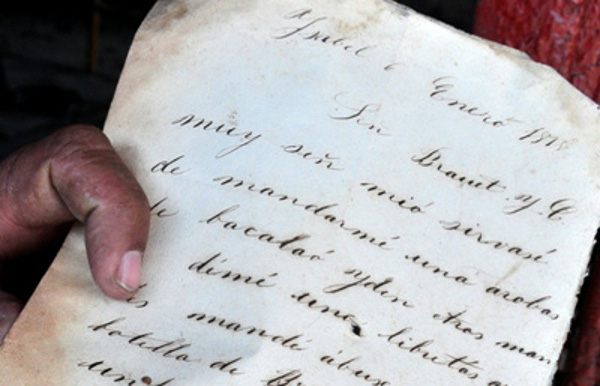 Ysabel 6 Enero 1878
Sin Braut y C
muy señ mió sirvasé
de mandarmé una arobas
de bacalaó yden otros man
dimé una libretas
mandé
botella de
una